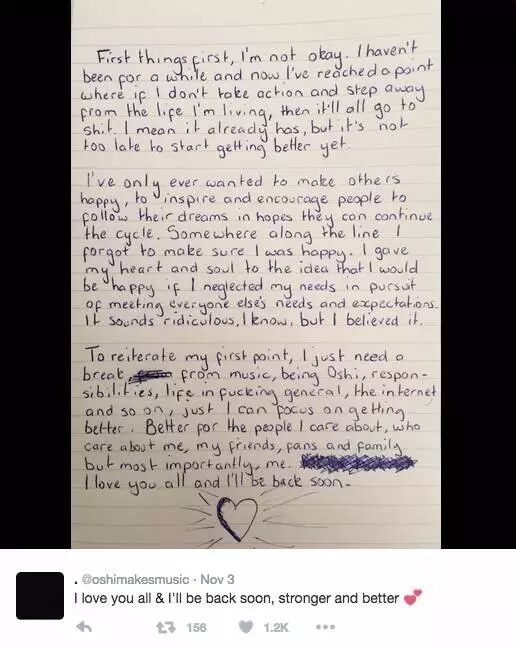 First things first, I'm not okay. I haven't
been for a while and now I've reached a point
where if I don't take action and step away
from the life I'm living, then it'll all go to
shit. I mean it already has, but it's not
too late to start getting better yet.
I've only ever wanted to make others
happy, to inspire and encourage people to
follow their dreams in hopes they can continue
the cycle. Somewhere along the line I
forgot to make sure I was happy. I gave
my heart and soul to the idea that I would
be happy if I neglected my needs in pursuit
of meeting everyone else's needs and expectations.
It sounds ridiculous, I know, but I believed it.
To reiterate my first point, I just need a
break from music, being Oshi, respon-
sibilities, life in fucking general, the internet
and so on, just I can focus on getting
better. Better for the people I care about, who
care about me, my friends, fans and family
but most importantly, me.
I love you all and I'll be back soon-
. @oshimakesmusic · Nov 3
I love you all & I'll be back soon, stronger and better 💕
156 1.2K